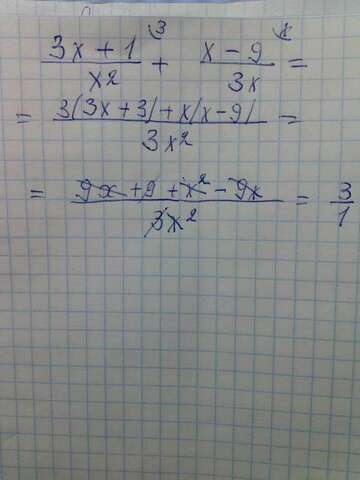 (3x + 1)/x² ³ + (x - 9)/3x ˣ =
= (3(3x + 3) + x(x - 9))/3x² =
= (9x + 9 + x² - 9x)/3x² = 3/1